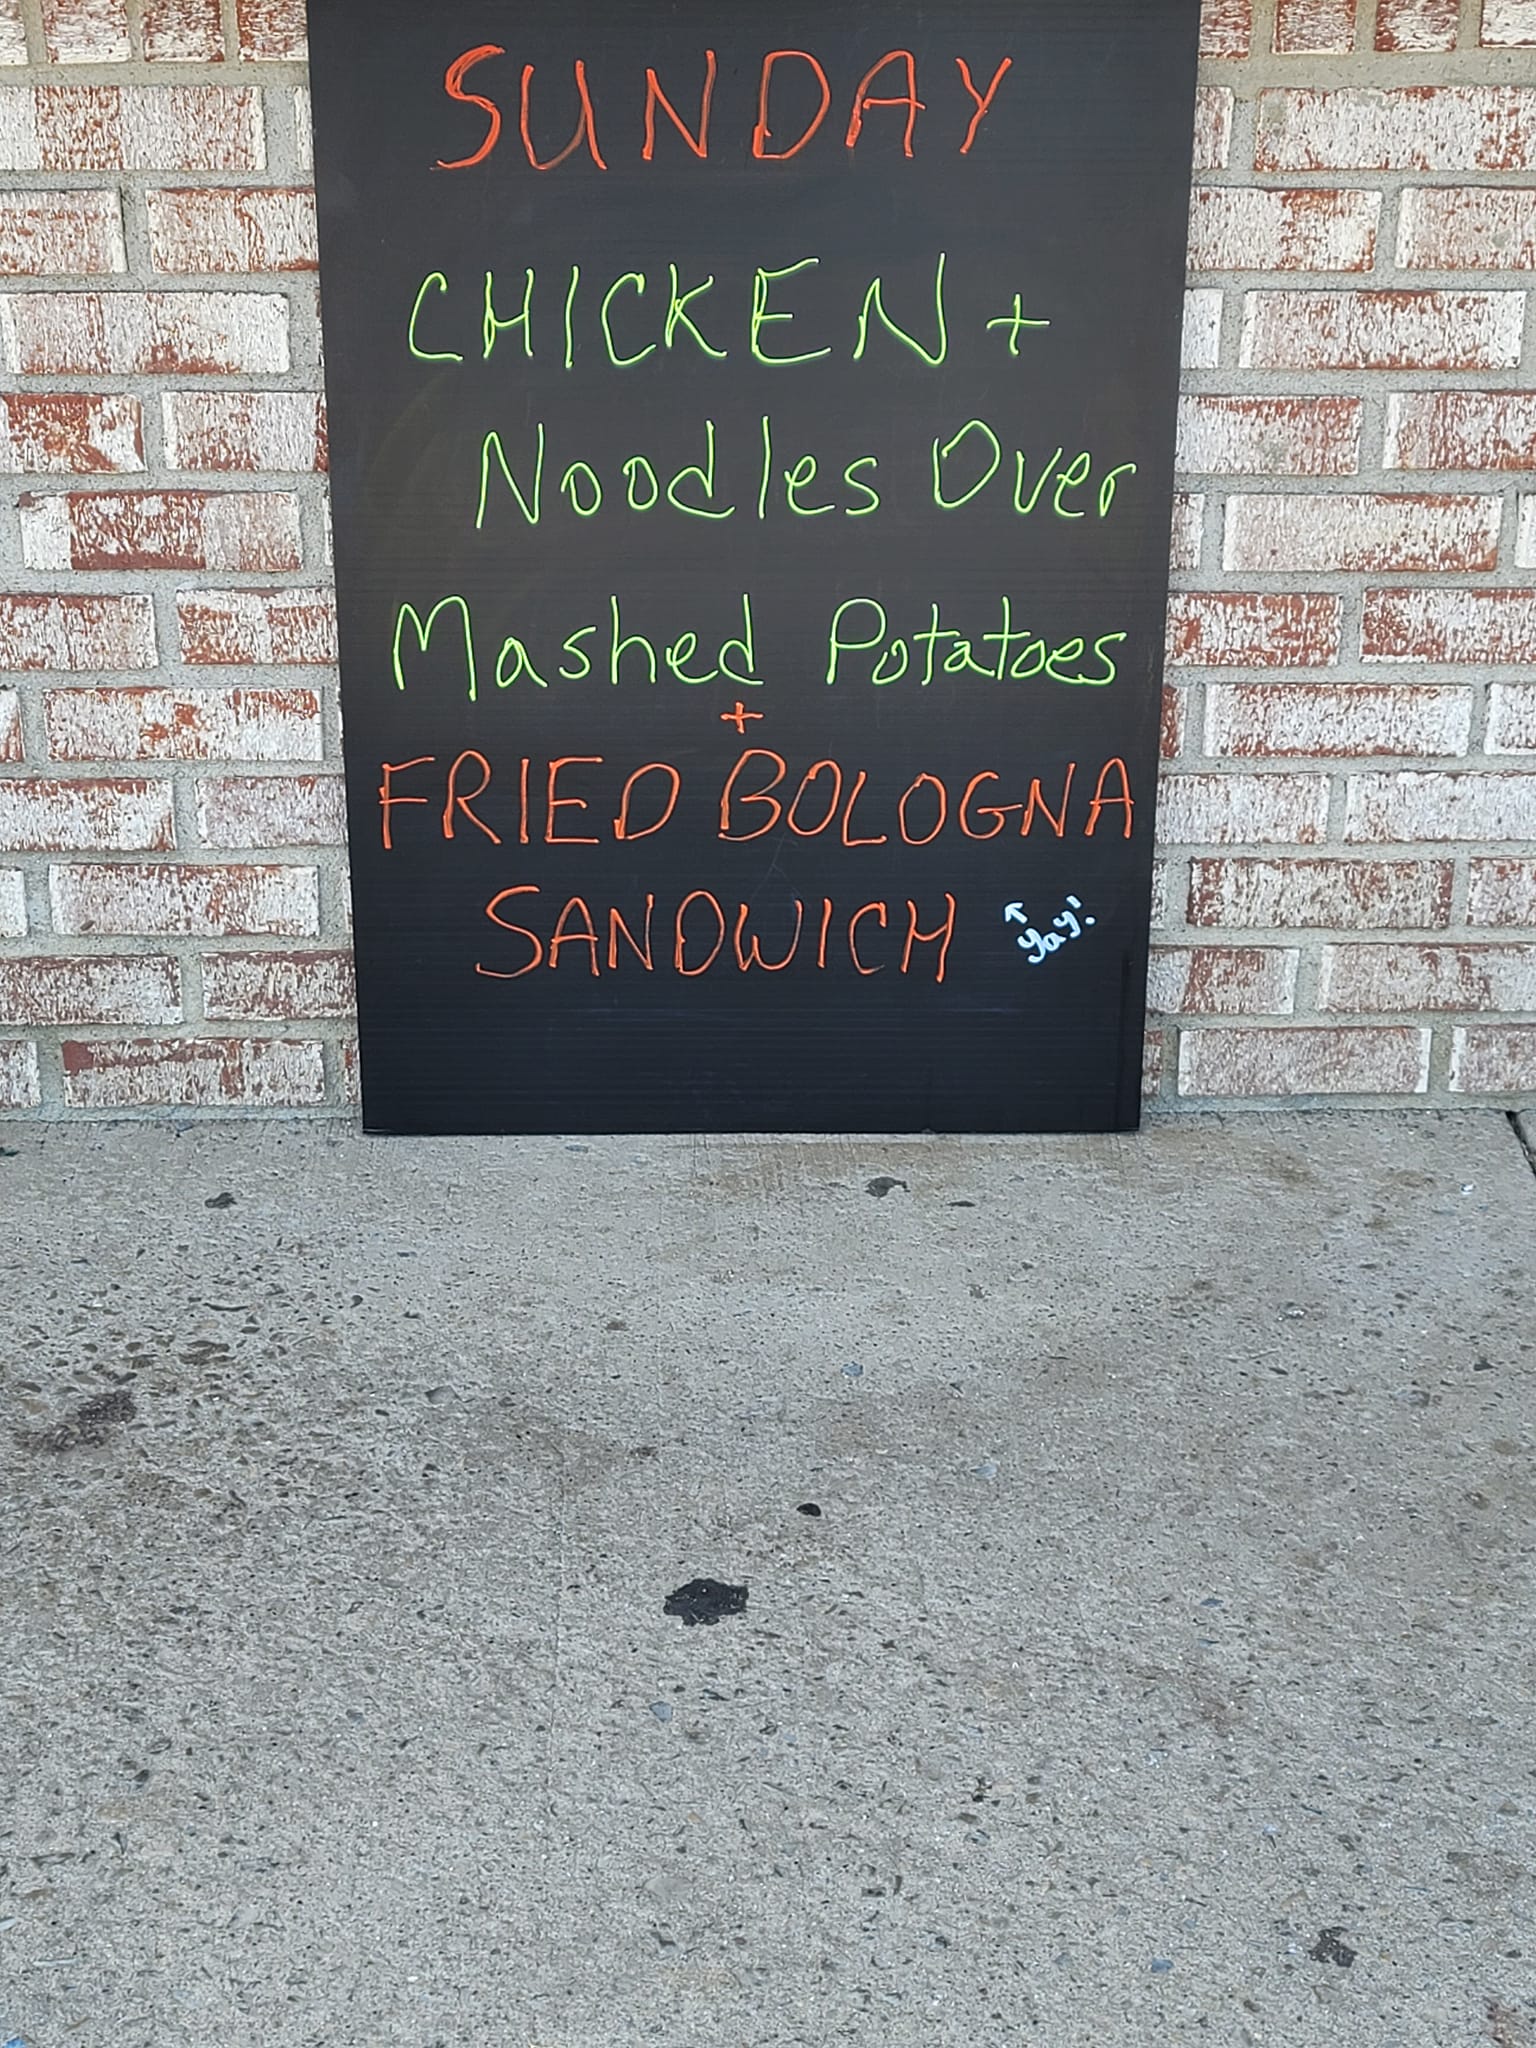 SUNDAY
CHICKEN +
Noodles Over
Mashed Potatoes
+
FRIED BOLOGNA
SANDWICH ↑ yay!